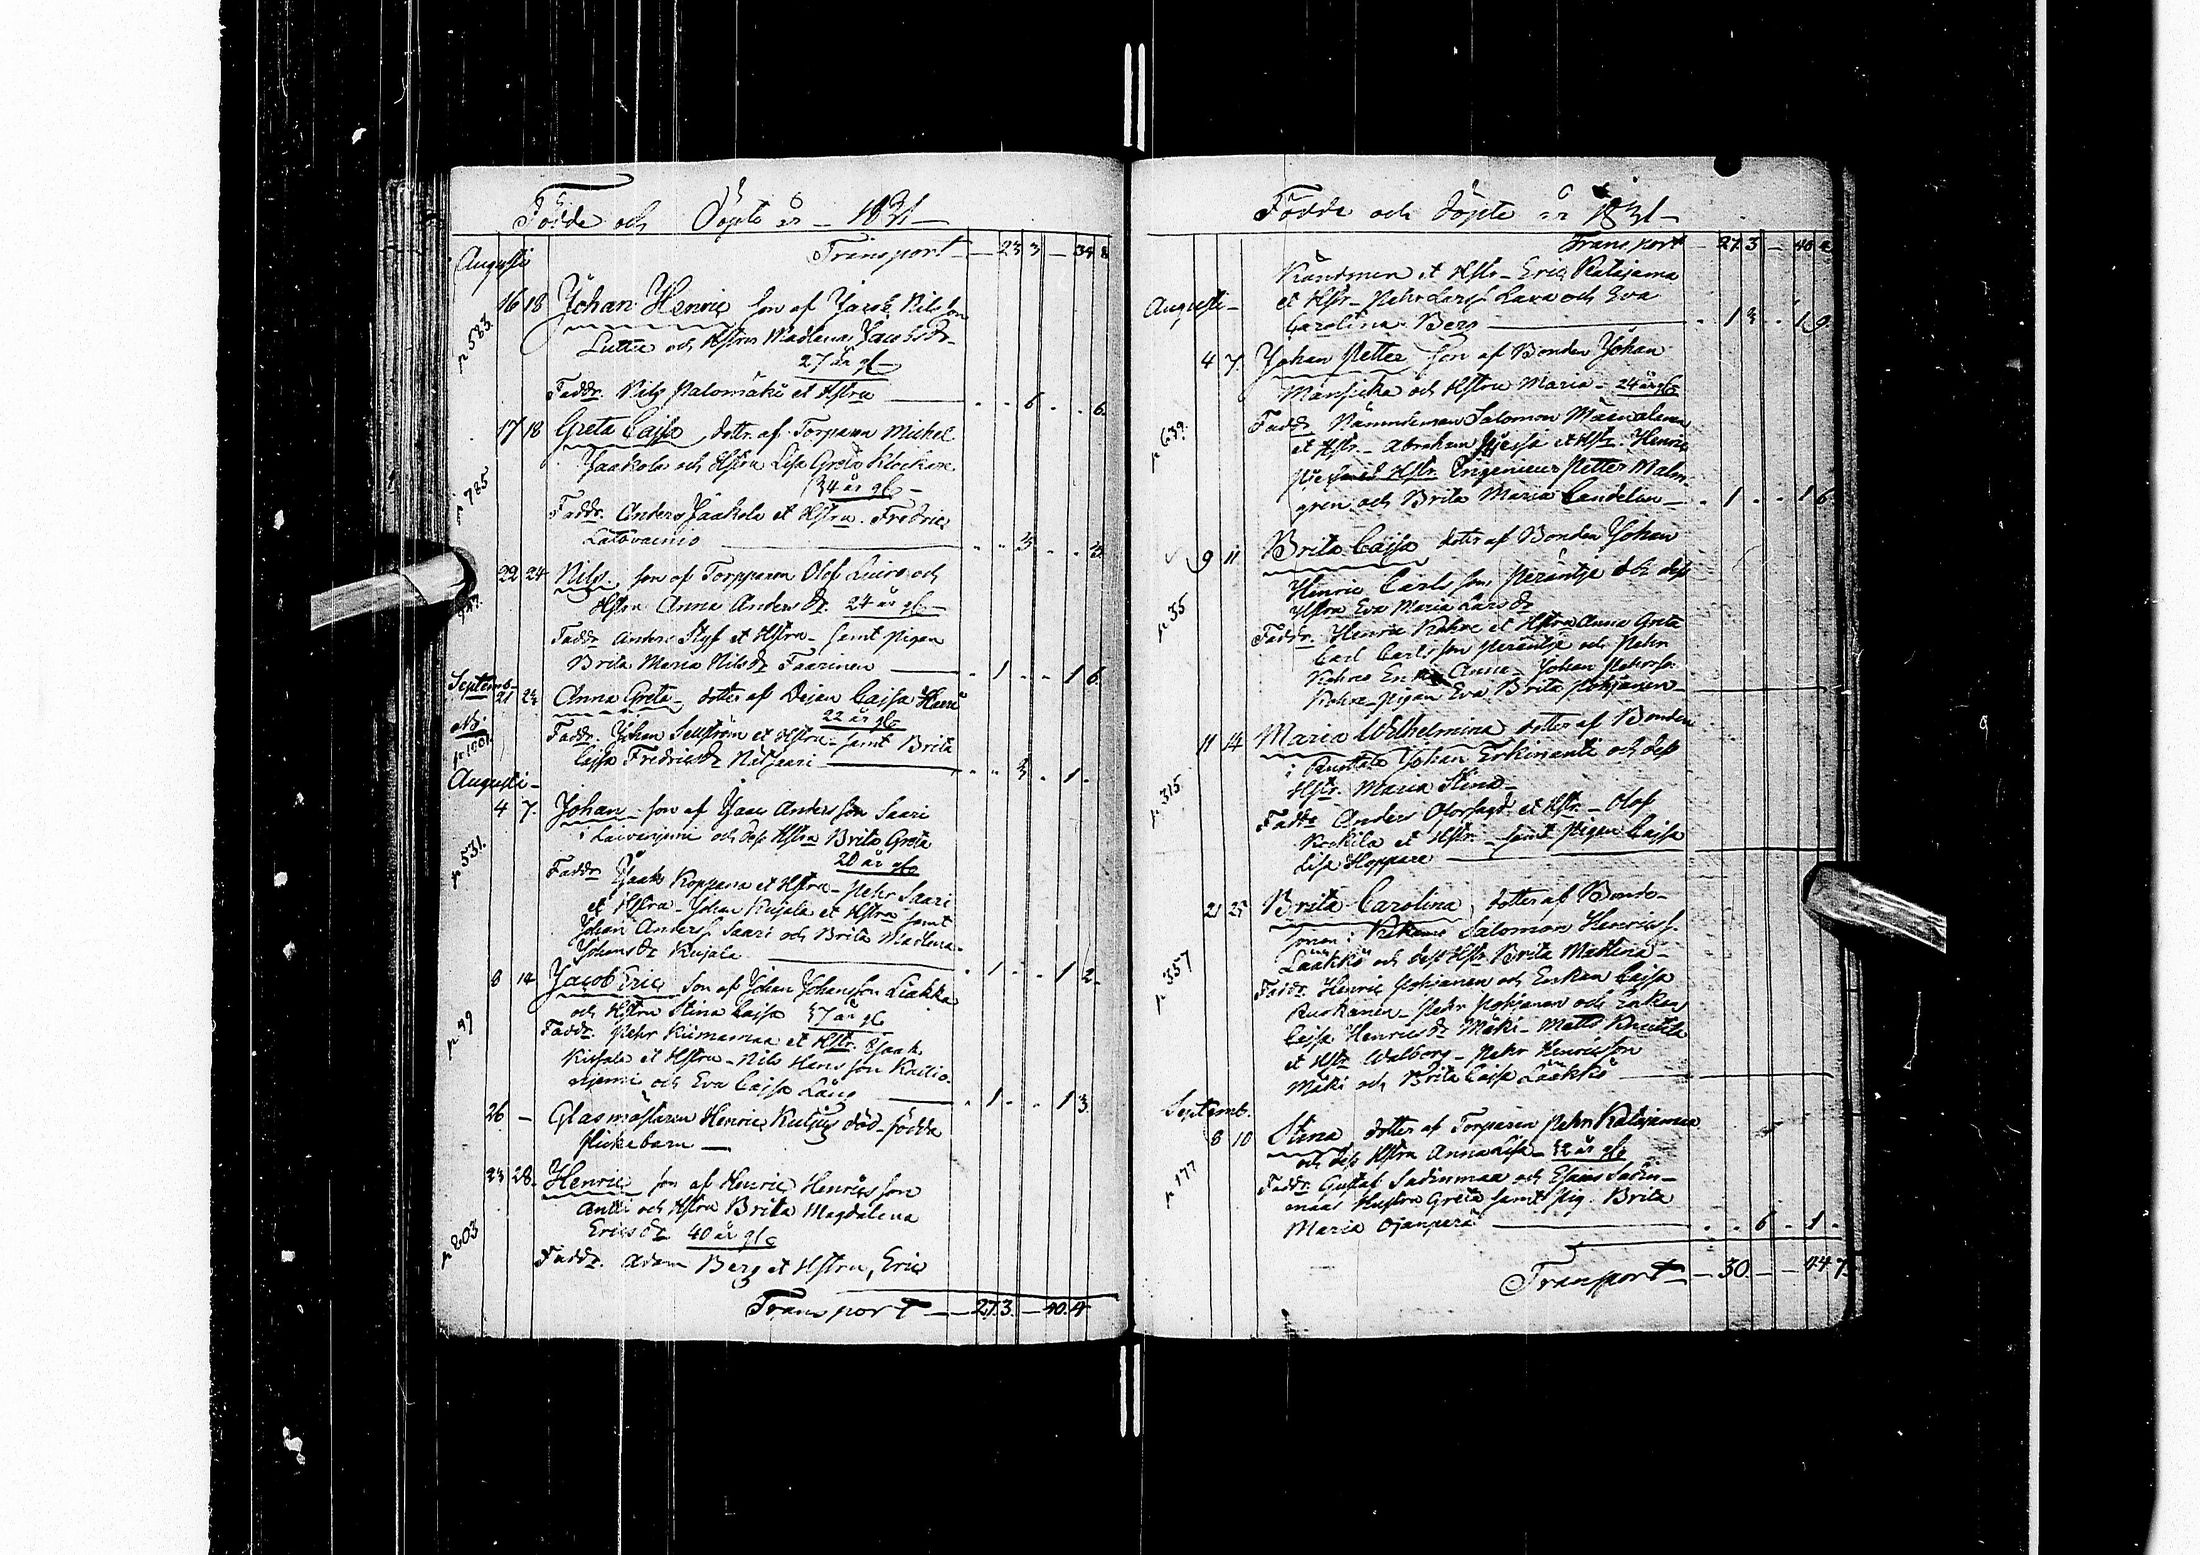 Födde och Döpte år 1831
Transport 23 3 34 8
Augusti
16 18 Johan Henric son af Jacob Nilsson
p 583. Luttu och Hstru Madlena Jacobsdr
27 år gl
Faddr. Nils Palomäki et Hstru 6 6.
17 18 Greta Cajsa dottr. af Torparen Michel
Jaakola och Hstru Lisa Greta Klockare
p 785 34 år gl
Faddr. Anders Jaakola et Hstru. Fredric
Latovainio 3 3.
22 24 Nils. son af Torpparen Olof Luiro och
Hstru Anna Andersdr. 24 år gl
Faddr Anders Styf et Hstru samt pigan
Brita Maria Nilsdr Taarinen 1 1 6.
Septemb.
21 23 Anna Greta dotter af Dejan Cajsa
22 år gl
NB. Faddr. Johan Sellström et Hstru samt Brita
Cajsa Fredricsdr 3 1
Augusti
4 7. Johan son af Isaac Andersson Saari
i och dess Hstru Brita Greta
p 531. 20 år gl
Faddr Isaak Koppana et Hstru Pehr Saari
et Hstru Johan Kujala et Hstru samt
Johan Anderss. Saari och Brita Madlena
Johansdr Kujala 1 1 2
8 14 Jacob Eric son af Johan Johansson Liakka
och Hstru Stina Cajsa 37 år gl
p 99 Faddr. Pehr Kiimamaa et Hstr. Isaak
Kujala et Hstru Nils Hansson
och Eva Cajsa Lång 1 1 3.
26 Glasmästaren Henric död-födda
flickebarn
23 28. Henric son af Henric Henricsson
Antti och Hstru Brita Magdalena
Ericsdr 40 år gl
p 203
Faddr. Adam Berg et Hstru, Eric
Transport 27.3. 40.4
Födde och döpte år 1831
Transport 27 3 40 4
et Hstr Eric Katajama
Augusti et Hstr Pehr Larss. Lava och Eva
Carolina Berg 1 3 1 9
4 7. Johan Petter son af Bonden Johan
och Hstru Maria 24 år gl
p 639. Faddr. Nämndeman Salomon
et Hstr. Abraham et Hstr. Henric
et Hstr. Ingenieur Petter Malm-
gren och Brita Maria Candelin 1 1 6
9 11 Brita Cajsa dotter af Bonden Johan
Henric Carlsson Peräntie och dess
p 35 Hstru Eva Maria Larsdr
Faddr. Henric et Hstru Anna Greta
Carl Carlsson Peräntie och Pehr
Anna Johan Pehrss.
pigan Eva Brita Pohjanen
11 14 Maria Wilhelmina dotter af Bonden
i Johan Erkinantti och dess
p 315 Hstr. Maria Stina
Faddr Anders et Hstr. Olof
Kockila et Hstr. samt pigan Cajsa
Lisa Hoppare
21 25 Brita Carolina, dotter af Bonde-
sonen i Salomon Henricss.
Läkkö och dess Hstr Brita Matlena
p 357 Faddr. Henric Pohjanen och Enkan Cajsa
Ruokanen Pehr Pohjanen och Enkan
Cajsa Henricsdr Mäki Matts Knuttila
et Hstr Walborg Pehr Henricsson
Mäki och Brita Cajsa Läkkö
Septemb.
8 10 Stina, dotter af Torparen Pehr Katajamaa
och dess Hstru Anna Lisa 32 år gl
p 177 Faddr. Gustaf Sadinmaa och Esaias Sadin-
maas Hustru Greta samt pig. Brita
Maria Ojanperä 6 1
Transport 30 44 7.